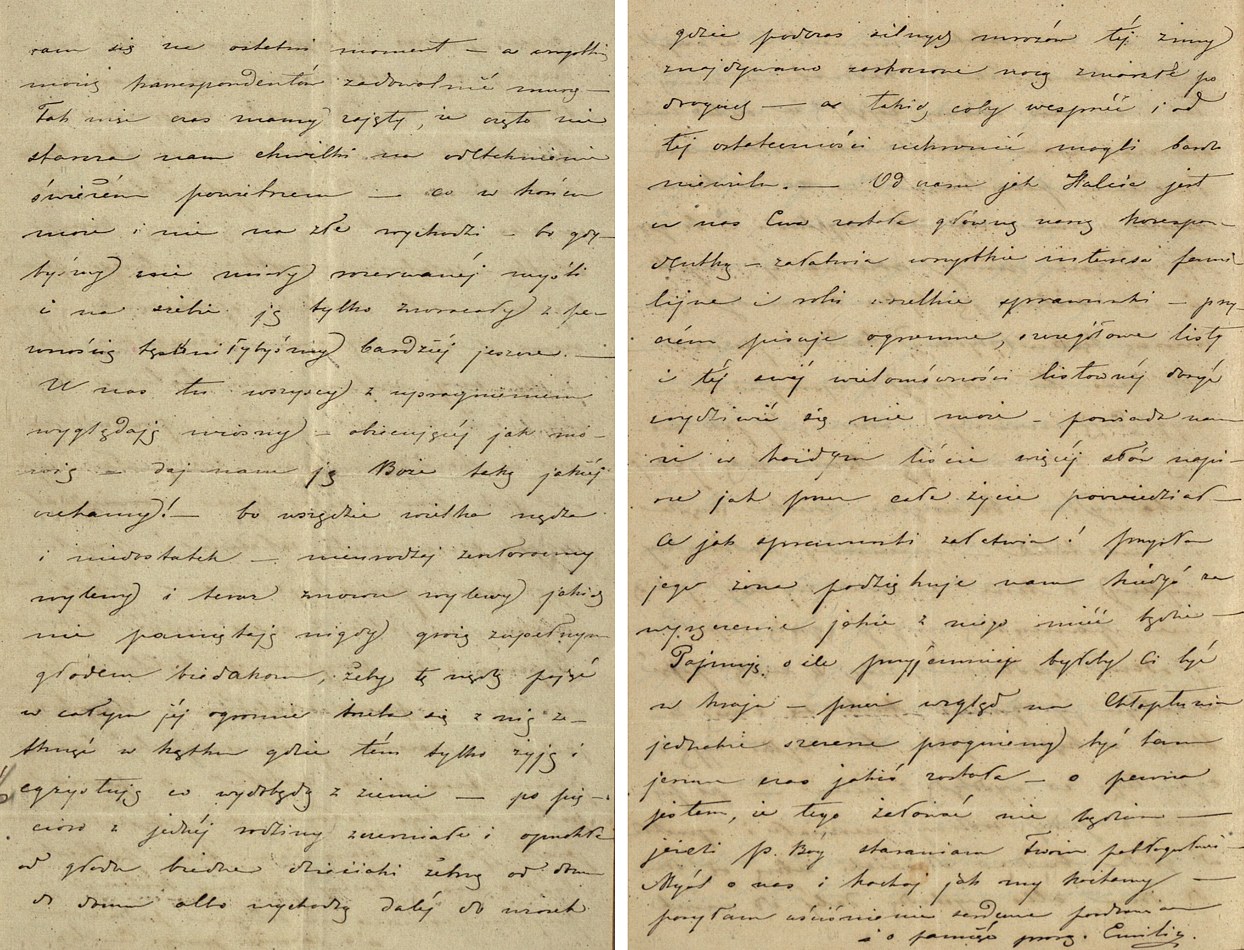 ram się na ostatni moment — a wszystkich
moich korespondentów zadowolnić muszę —
Tak więc czas mamy zajęty, że często nie
starcza nam chwilki na odetchnienie
świeżém powietrzem — co w końcu
może i nie na złe wychodzi — bo gdy-
byśmy nie miały rozerwanéj myśli
i na siebie ją tylko zwracały z pe-
wnością tęskniłybyśmy bardziéj jeszcze. —
U nas tu wszyscy z upragnieniem
wyglądają wiosny — obiecującéj jak mó-
wią — daj nam ją Boże taką jakiéj
czekamy! — bo wszędzie wielka nędza
i niedostatek — nieurodzaj zeszłoroczny
wylewy i teraz znowu wylewy jakich
nie pamiętają nigdy grożą zupełnym
głodem biedakom, żeby tę nędzę pojąć
w całym jéj ogromie trzeba się z nią ze-
tknąć w kątku gdzie tém tylko żyją i
egzystują co wydobędą z ziemi — po pię-
cioro z jednéj rodziny sczerniałe i opuchłe
od głodu biedne dzieciaki żebrzą od domu
do domu albo wychodzą daléj do wiosek
gdzie podczas silnych mrozów téj zimy
znajdywano zaskoczone nocą zmarzłe po
drogach — a takich coby wesprzéć i od
téj ostateczności uchronić mogli bardzo
niewielu. — Od czasu jak Halcia jest
u nas Ewa została główną naszą korespon-
dentką — załatwia wszystkie interesa fami-
lijne i robi wszelkie sprawunki — przy-
czém pisuje ogromne, szczegółowe listy
i téj swéj wielomówności listownéj dosyć
wydziwić się nie może — powiada nam
że w każdym liście więcéj słów napi-
sze jak przez całe życie powiedział —
A jak sprawunki załatwia! przyszła
jego żona podziękuje nam kiedyś za
wyręczenie jakie z niego miéć będzie —
Pojmuję o ile przyjemniéj byłoby Ci być
w kraju — przez wzgląd na Chłoptusia
jednakże szczerze pragniemy byś tam
jeszcze czas jakiś została — o pewna
jestem, że tego żałować nie będziesz —
jeżeli P. Bóg staraniom Twoim pobłogosławi —
Myśl o nas i kochaj jak my kochamy —
posyłam uściśnienie serdeczne
i o pamięć proszę. Emilia.